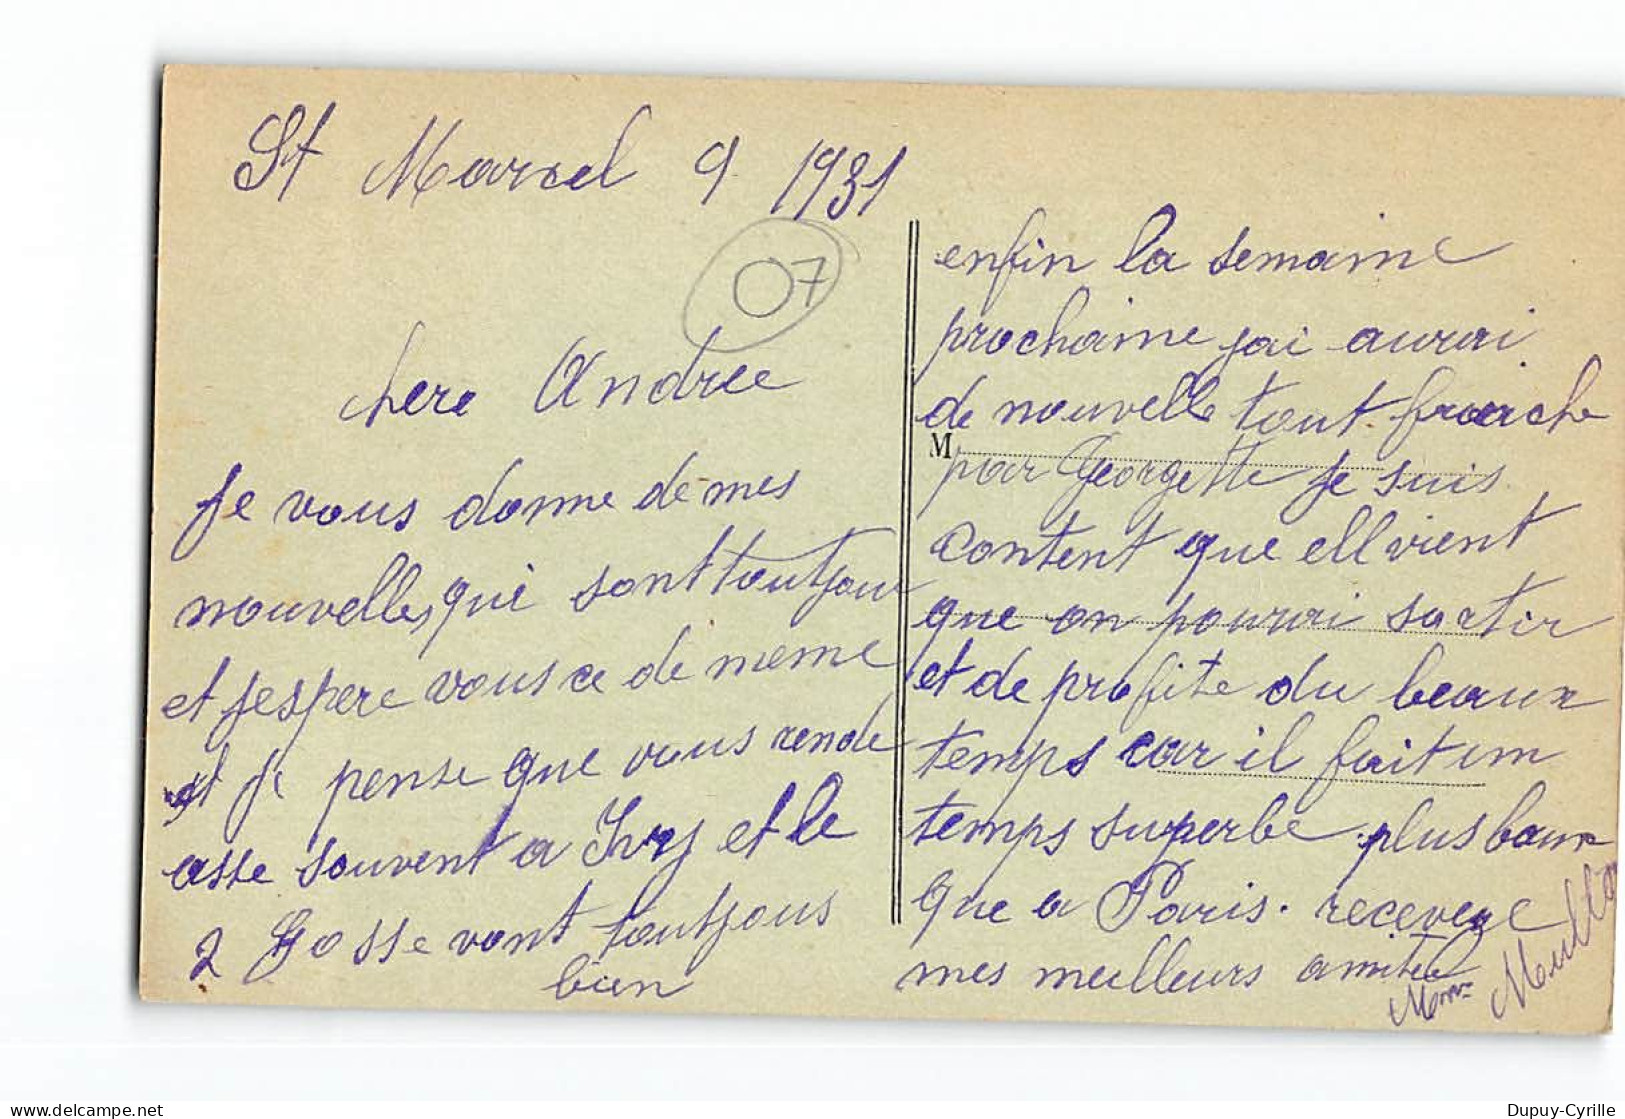 St Marcel 9 1931
07
chere Andree
je vous donne de mes
nouvelles qui sont toutjour
et jespere vous ce de meme
et je pense que vous rende
asse souvent a Ivry et le
2 Gosse vont toutjous
bien
enfin la semaine
prochaine jai aurai
de nouvelle tout fraiche
M
par Georgette je suis
content que ell vient
que on pourai sortir
et de profite du beaux
temps car il fait un
temps superbe plus baux
que a Paris. receveze
mes meilleurs amitié
Mme
Dupuy-Cyrille